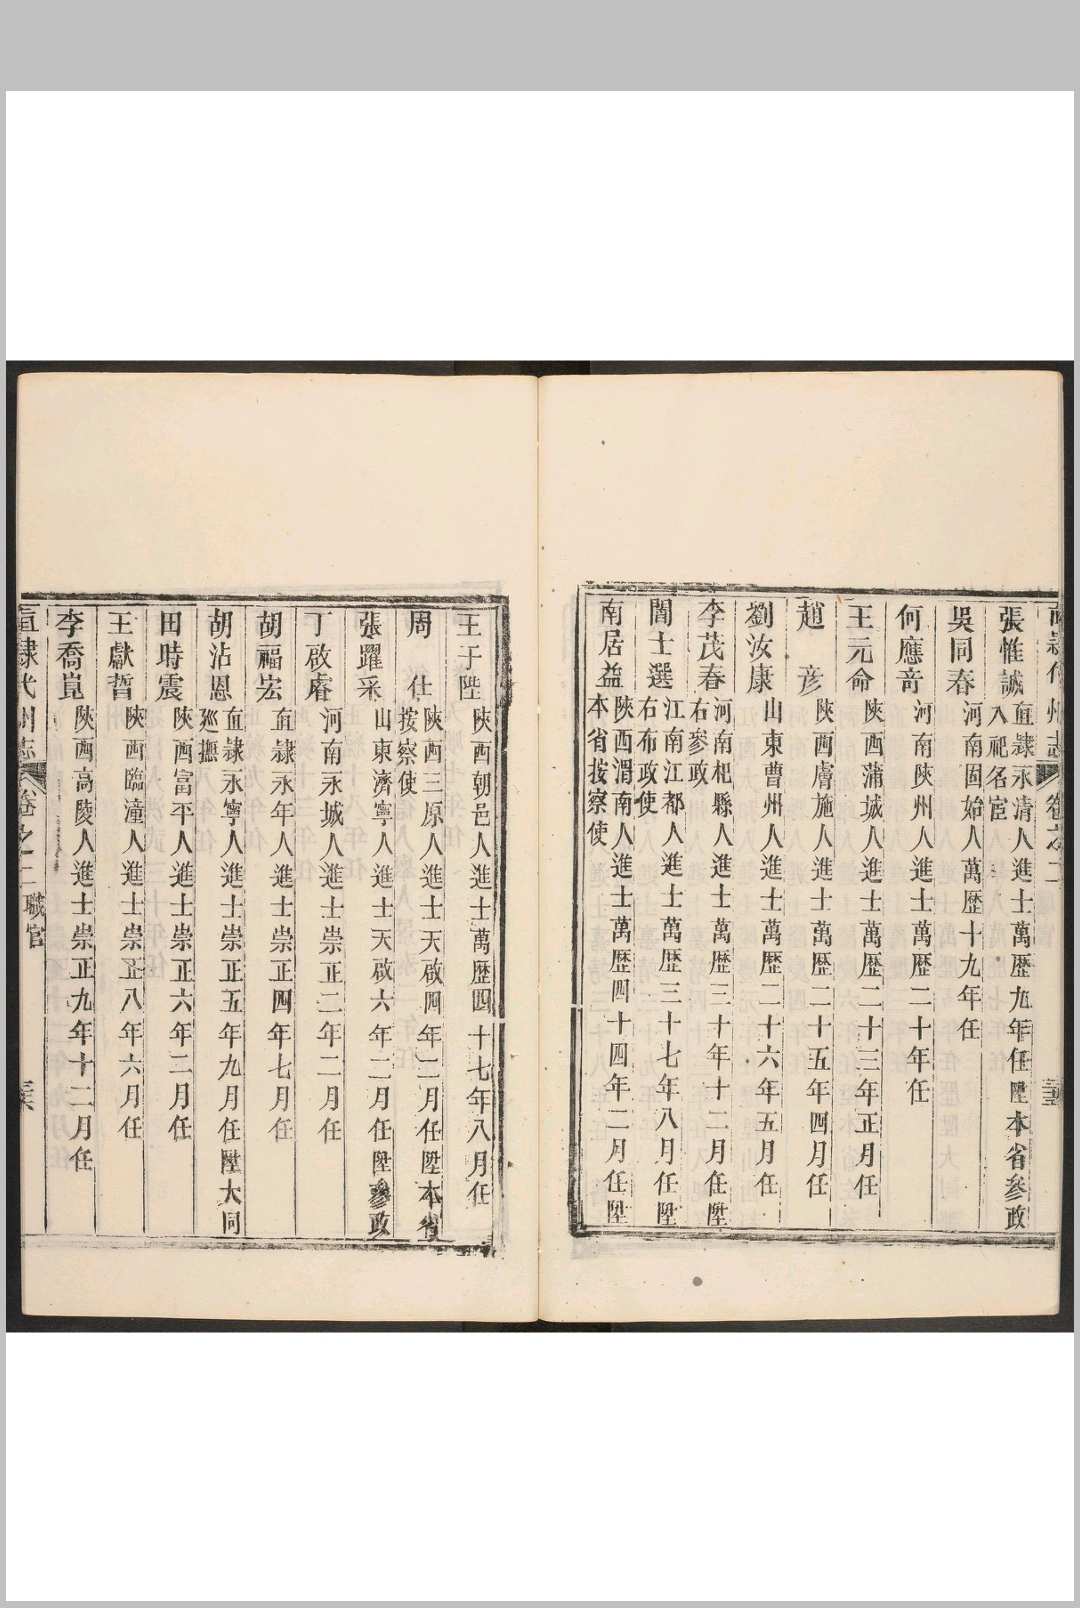 直隷代州志 卷之二
張惟誠 直隷永清人進士萬歷九年任陞本省參政
入祀名宦
吳同春 河南固始人萬歷十九年任
何應奇 河南陝州人進士萬歷二十年任
王元命 陝西蒲城人進士萬歷二十三年正月任
趙彦 陝西膚施人進士萬歷二十五年四月任
劉汝康 山東曹州人進士萬歷二十六年五月任
李茂春 河南杞縣人進士萬歷三十年十二月任陞
右參政
閻士選 江南江都人進士萬歷三十七年八月任陞
右布政使
南居益 陝西渭南人進士萬歷四十四年二月任陞
本省按察使
王于陛 陝西朝邑人進士萬歷四十七年八月任
周仕 陝西三原人進士天啟四年二月任陞本省
按察使
張躍采 山東濟寧人進士天啟六年二月任陞參政
丁啟睿 河南永城人進士崇正二年二月任
胡福宏 直隷永年人進士崇正四年七月任
胡沾恩 直隷永寧人進士崇正五年九月任陞大同
巡撫
田時震 陝西富平人進士崇正六年二月任
王獻晢 陝西臨潼人進士崇正八年六月任
李喬崑 陝西高陵人進士崇正九年十二月任
直隷代州志 卷之二 職官